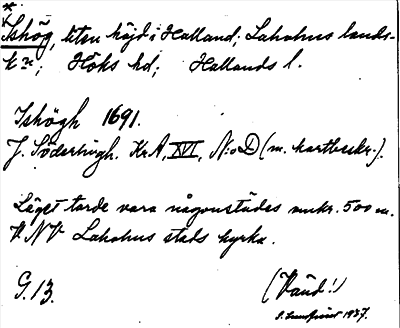 *Ishög, liten höjd i Halland; Laholms lands-
kn; Höks hd; Hallands l.
Ishögh 1691.
J. Söderlingh. KrA, XVI, N:o D (m. kartbeskr.).
Läget torde vara någonstädes omkr. 500 m.
V.N.V. Laholms stads kyrka.
G. 13.
(Vänd!)
1937.